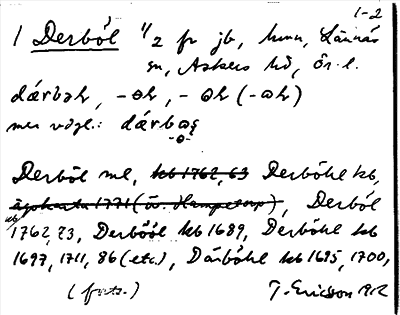 1-2
1 Derböl 1/2 fr jb, hmn, Lännäs
sn, Askers hd, Ör. l.
dárbəl, -ɵl, -ɷl (-ɷl)
mer vdgl.:
Derböl ml, kb 1762, 63 Derböhl kb,
ägokarta 1771 (öv. Hampetorp), Derböl
1762, 73, Derbööl kb 1689, Derböhl kb
1697, 1711, 86 (etc.), Därböhl kb 1695, 1700,
(forts.) J. Ericson 1912